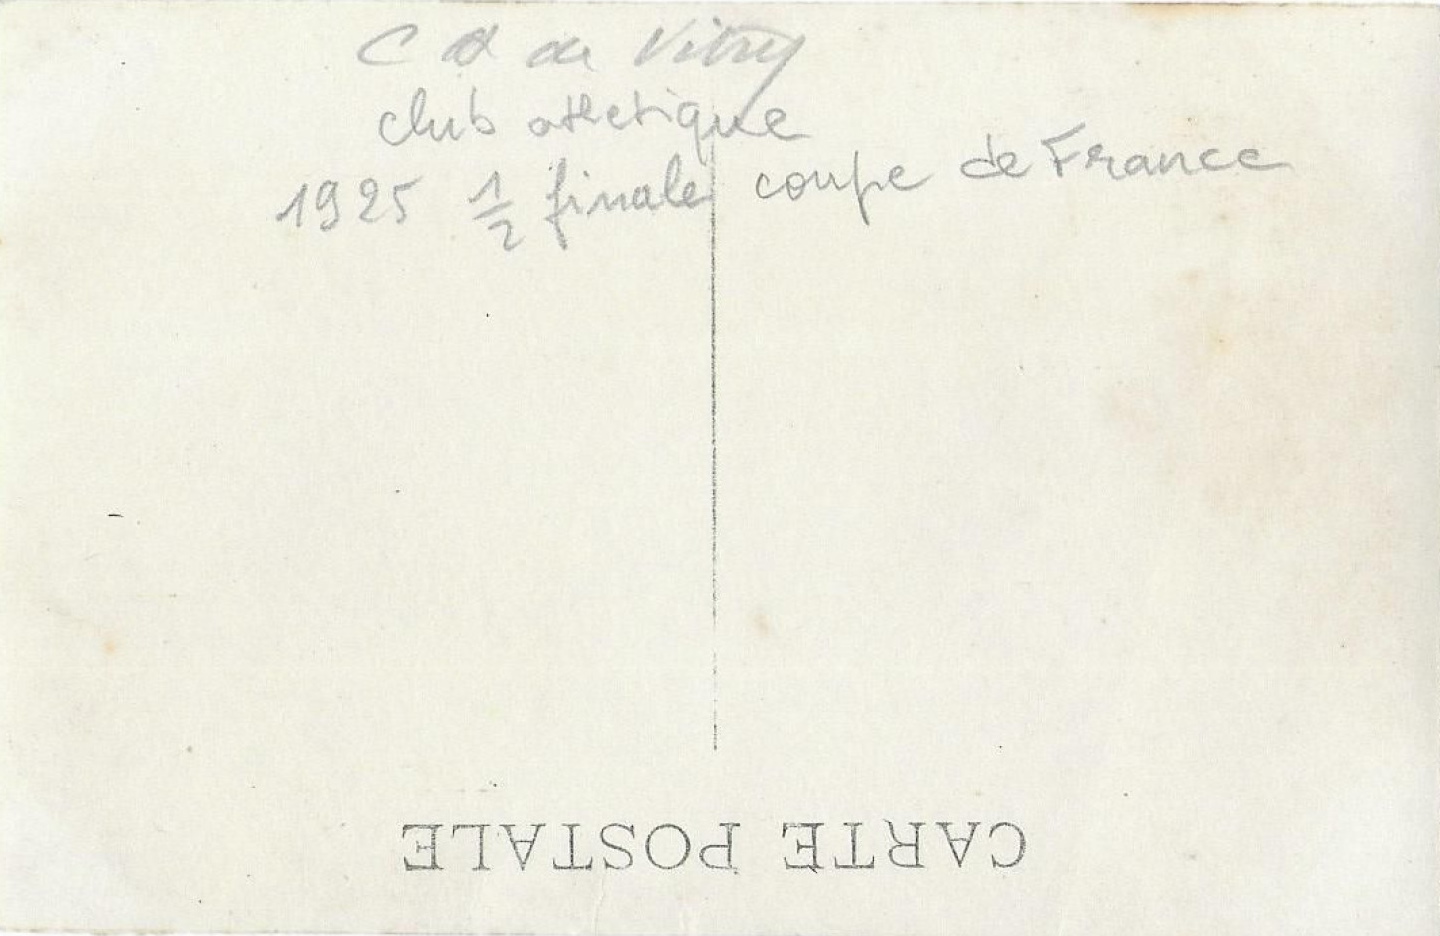 CA de Vitry
club athletique
1925 1/2 finale coupe de France
CARTE POSTALE